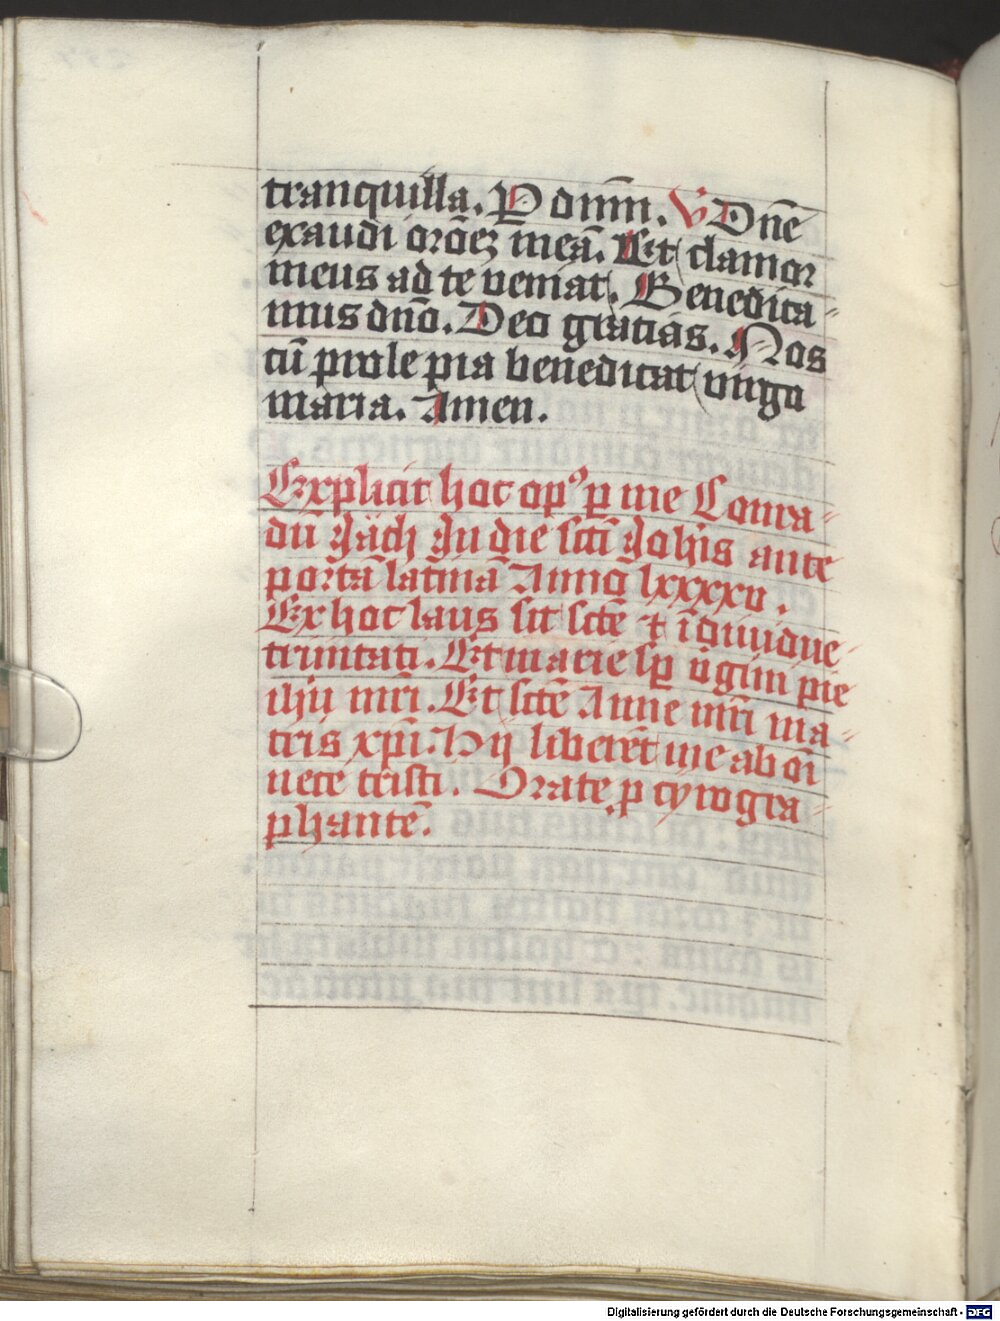 tranquilla. P dnm̄. V Dn̄e
exaudi orōeʒ meā. Et clamor
meus ad te veniat. Benedica-
mus dn̄o. Deo gracias. Nos
cū prole pia benedicat virgo
maria. Amen.
Explicit hoc opꝰ ꝑ me Conra-
dū Jäch In die sc̄ti Joh̄is ante
portā latinā Anno lxxxxv.
Ex hoc laus sit sc̄te ⁊ īdiuidue
trinitati. Et marie sꝑ v̄gini pie
ihū mr̄i. Et sc̄te Anne mr̄i ma-
tris xp̄i. Hij liberēt me ab oī
nece tristi. Orate ꝓ cyrogra-
phante.
Digitalisierung gefördert durch die Deutsche Forschungsgemeinschaft - DFG